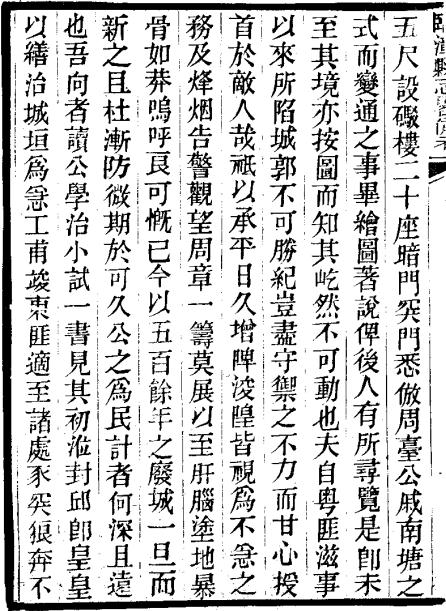 五尺設礮樓二十座暗門突門悉倣周臺公戚南塘之
式而變通之事畢繪圖著說俾後人有所尋覽是卽未
至其境亦按圖而知其屹然不可動也夫自粤匪滋事
以來所陷城郭不可勝紀豈盡守禦之不力而甘心授
首於敵人哉祇以承平日久增陴浚隍皆視爲不急之
務及烽烟告警觀望周章一籌莫展以至肝腦塗地暴
骨如莽嗚呼良可慨已今以五百餘年之廢城一旦而
新之且杜漸防微期於可久公之爲民計者何深且遠
也吾向者讀公學治小試一書見其初涖封邱卽皇皇
以繕治城垣爲急工甫竣東匪適至諸處豕突狼奔不